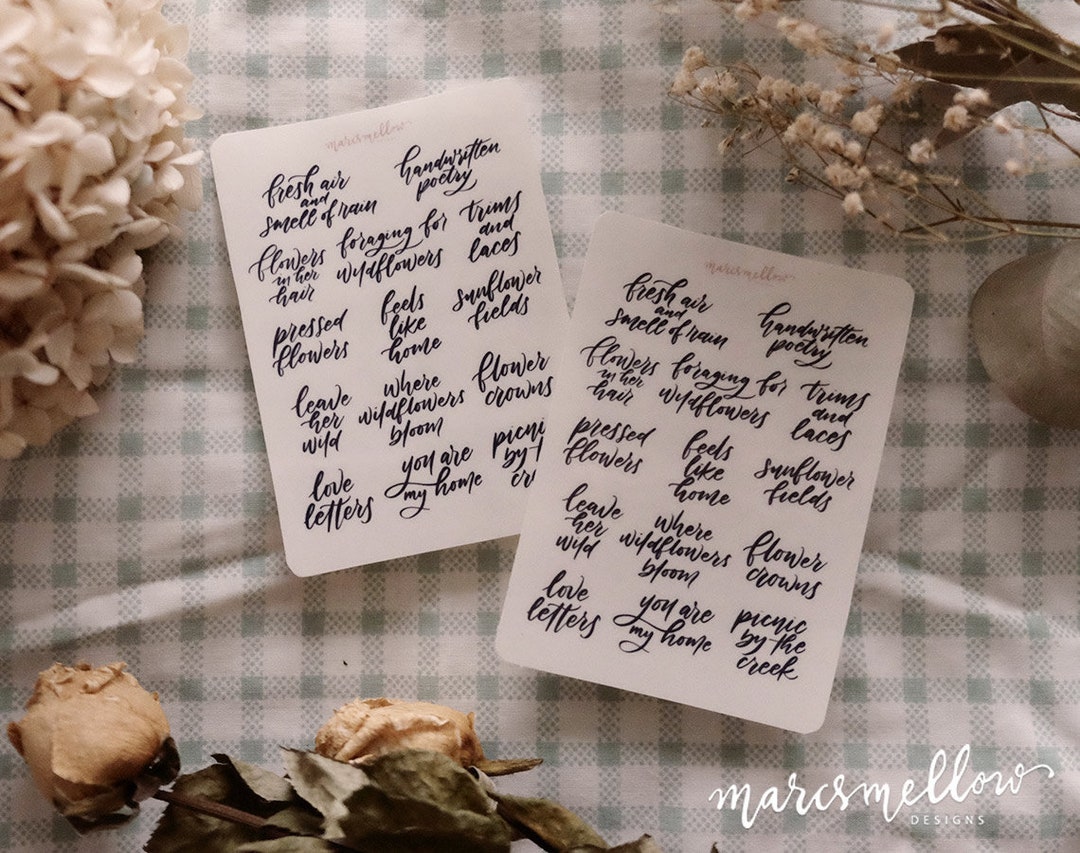 marcsmellow
fresh air
and
smell of rain
handwritten
poetry
flowers
in her
hair
foraging for
wildflowers
trims
and
laces
pressed
flowers
feels
like
home
sunflower
fields
leave
her
wild
where
wildflowers
bloom
flower
crowns
love
letters
you are
my home
picni
by t
cr
marcsmellow
fresh air
and
smell of rain
handwritten
poetry
flowers
in her
hair
foraging for
wildflowers
trims
and
laces
pressed
flowers
feels
like
home
sunflower
fields
leave
her
wild
where
wildflowers
bloom
flower
crowns
love
letters
you are
my home
picnic
by the
creek
marcsmellow
DESIGNS